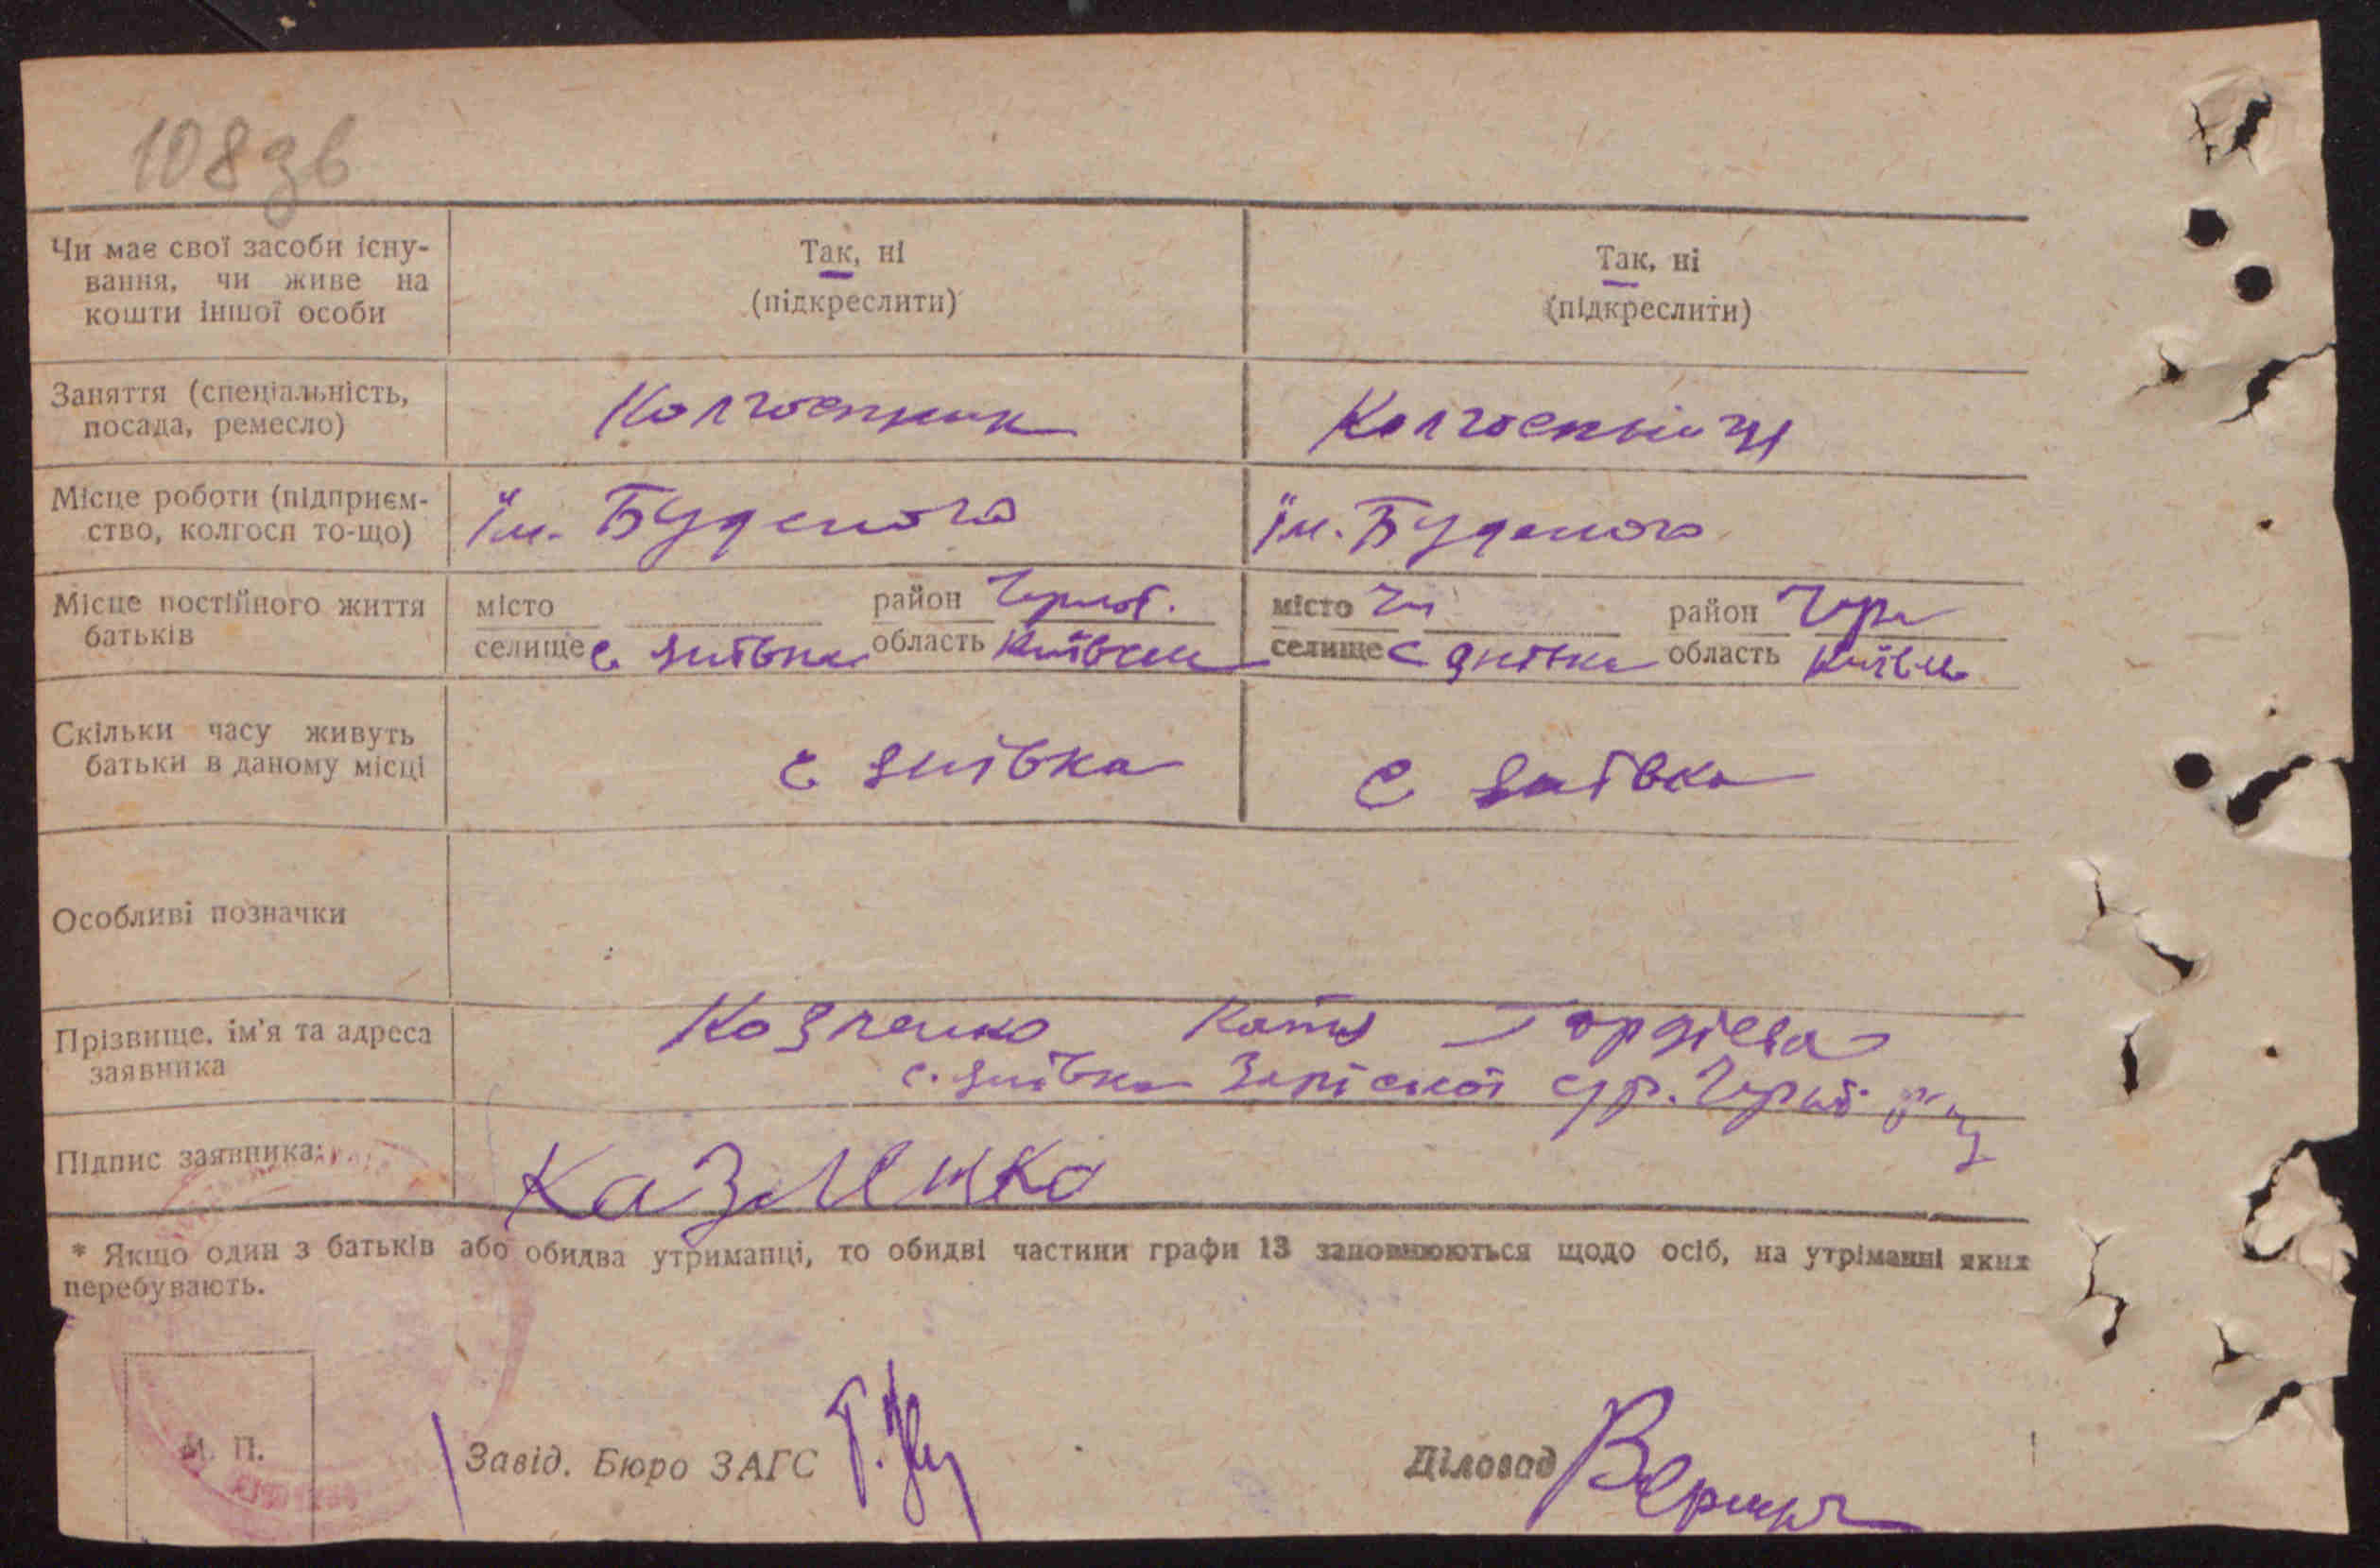 108 зв
Чи має свої засоби існу-
вання, чи живе на
кошти іншої особи
Так, ні
(підкреслити)
Так, ні
(підкреслити)
Заняття (спеціальність,
посада, ремесло)
Колгоспник
Колгоспниця
Місце роботи (підприєм-
ство, колгосп то-що)
Ім. Буденого
Ім. Буденого
Місце постійного життя
батьків
місто
район Чорноб.
селище с
область Київськ
місто
район Чорн
селище с
область Київськ
Скільки часу живуть
батьки в даному місці
с
с
Особливі позначки
Прізвище, ім'я та адреса
заявника
Козленко Катя Гордієва
с.
Підпис заявника:
Казленко
* Якщо один з батьків або обидва утриманці, то обидві частини графи 13 заповнюються щодо осіб, на утріманні яких
перебувають.
М. П.
Завід. Бюро ЗАГС
Діловод